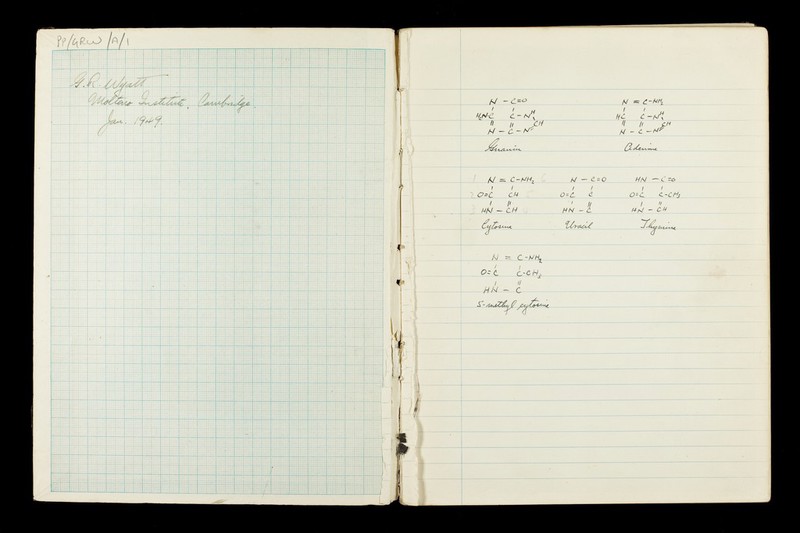 PP/GRW/A/1
G.R. Wyatt
Molteno Institute, Cambridge.
Jan. 1949.
N - C=O
H₂NC C-N H
N - C - N CH
Guanin
N = C-NH₂
HC C-N H
N - C - N CH
Adenine
N = C-NH₂
O=C CH
HN - CH
Cytosine
N - C=O
O=C C
HN - C
Uracil
HN - C=O
O=C C-CH₃
HN - CH
Thymine
N = C-NH₂
O=C C-CH₃
HN - C
5-methyl cytosine